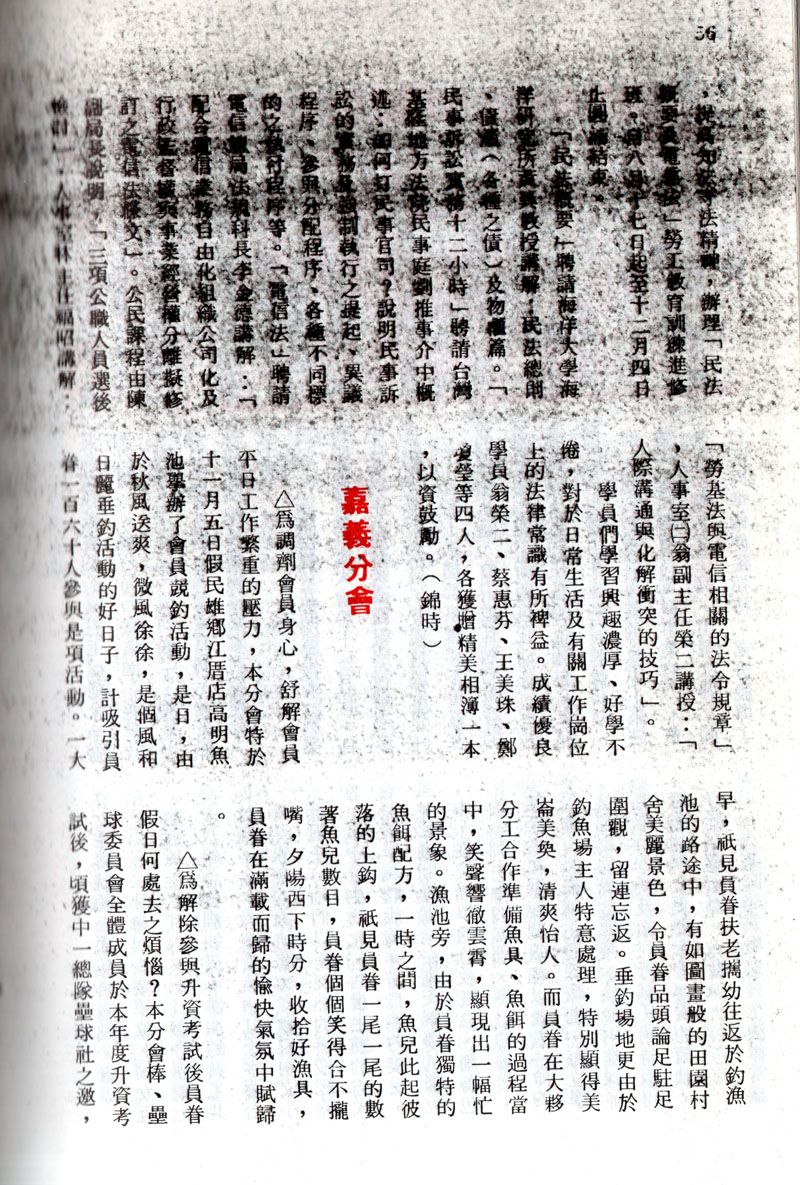 56
，提高知法守法精神，辦理「民法
概要及電信法」勞工教育訓練進修
班，自八月十七日起至十二月四日
止圓滿結束。
「民法概要」聘請海洋大學海
洋研究所黃異教授講解：民法總則
、債編（各種之債）及物權篇。「
民事訴訟實務十二小時」聘請台灣
基隆地方法院民事庭劉推事介中概
述：如何打民事官司？說明民事訴
訟的實務及強制執行之提起、異議
程序、參與分配程序、各種不同標
的之執行程序等。「電信法」聘請
電信總局法規科長李金德講解：「
配合電信業務自由化組織公司化及
行政監督權與事業經營權分離擬修
訂之電信法條文」。公民課程由陳
副局長說明，「三項公職人員選後
檢討」，人事室林主任福昭講解：
「勞基法與電信相關的法令規章」
，人事室㈡翁副主任榮二講授：「
人際溝通與化解衝突的技巧」。
學員們學習興趣濃厚、好學不
倦，對於日常生活及有關工作崗位
上的法律常識有所裨益。成績優良
學員翁榮二、蔡惠芬、王美珠、鄭
愛瑩等四人，各獲贈精美相簿一本
，以資鼓勵。（錦時）
嘉義分會
△為調劑會員身心，舒解會員
平日工作繁重的壓力，本分會特於
十一月五日假民雄鄉江厝店高明魚
池舉辦了會員競釣活動，是日，由
於秋風送爽，微風徐徐，是個風和
日麗垂釣活動的好日子，計吸引員
眷一百六十人參與是項活動。一大
早，祇見員眷扶老攜幼往返於釣漁
池的路途中，有如圖畫般的田園村
舍美麗景色，令員眷品頭論足駐足
圍觀，留連忘返。垂釣場地更由於
釣魚場主人特意處理，特別顯得美
崙美奐，清爽怡人。而員眷在大夥
分工合作準備魚具、魚餌的過程當
中，笑聲響徹雲霄，顯現出一幅忙
的景象。漁池旁，由於員眷獨特的
魚餌配方，一時之間，魚兒此起彼
落的上鈎，祇見員眷一尾一尾的數
著魚兒數目，員眷個個笑得合不攏
嘴，夕陽西下時分，收拾好漁具，
員眷在滿載而歸的愉快氣氛中賦歸
。
△為解除參與升資考試後員眷
假日何處去之煩惱？本分會棒、壘
球委員會全體成員於本年度升資考
試後，頃獲中一總隊壘球社之邀，